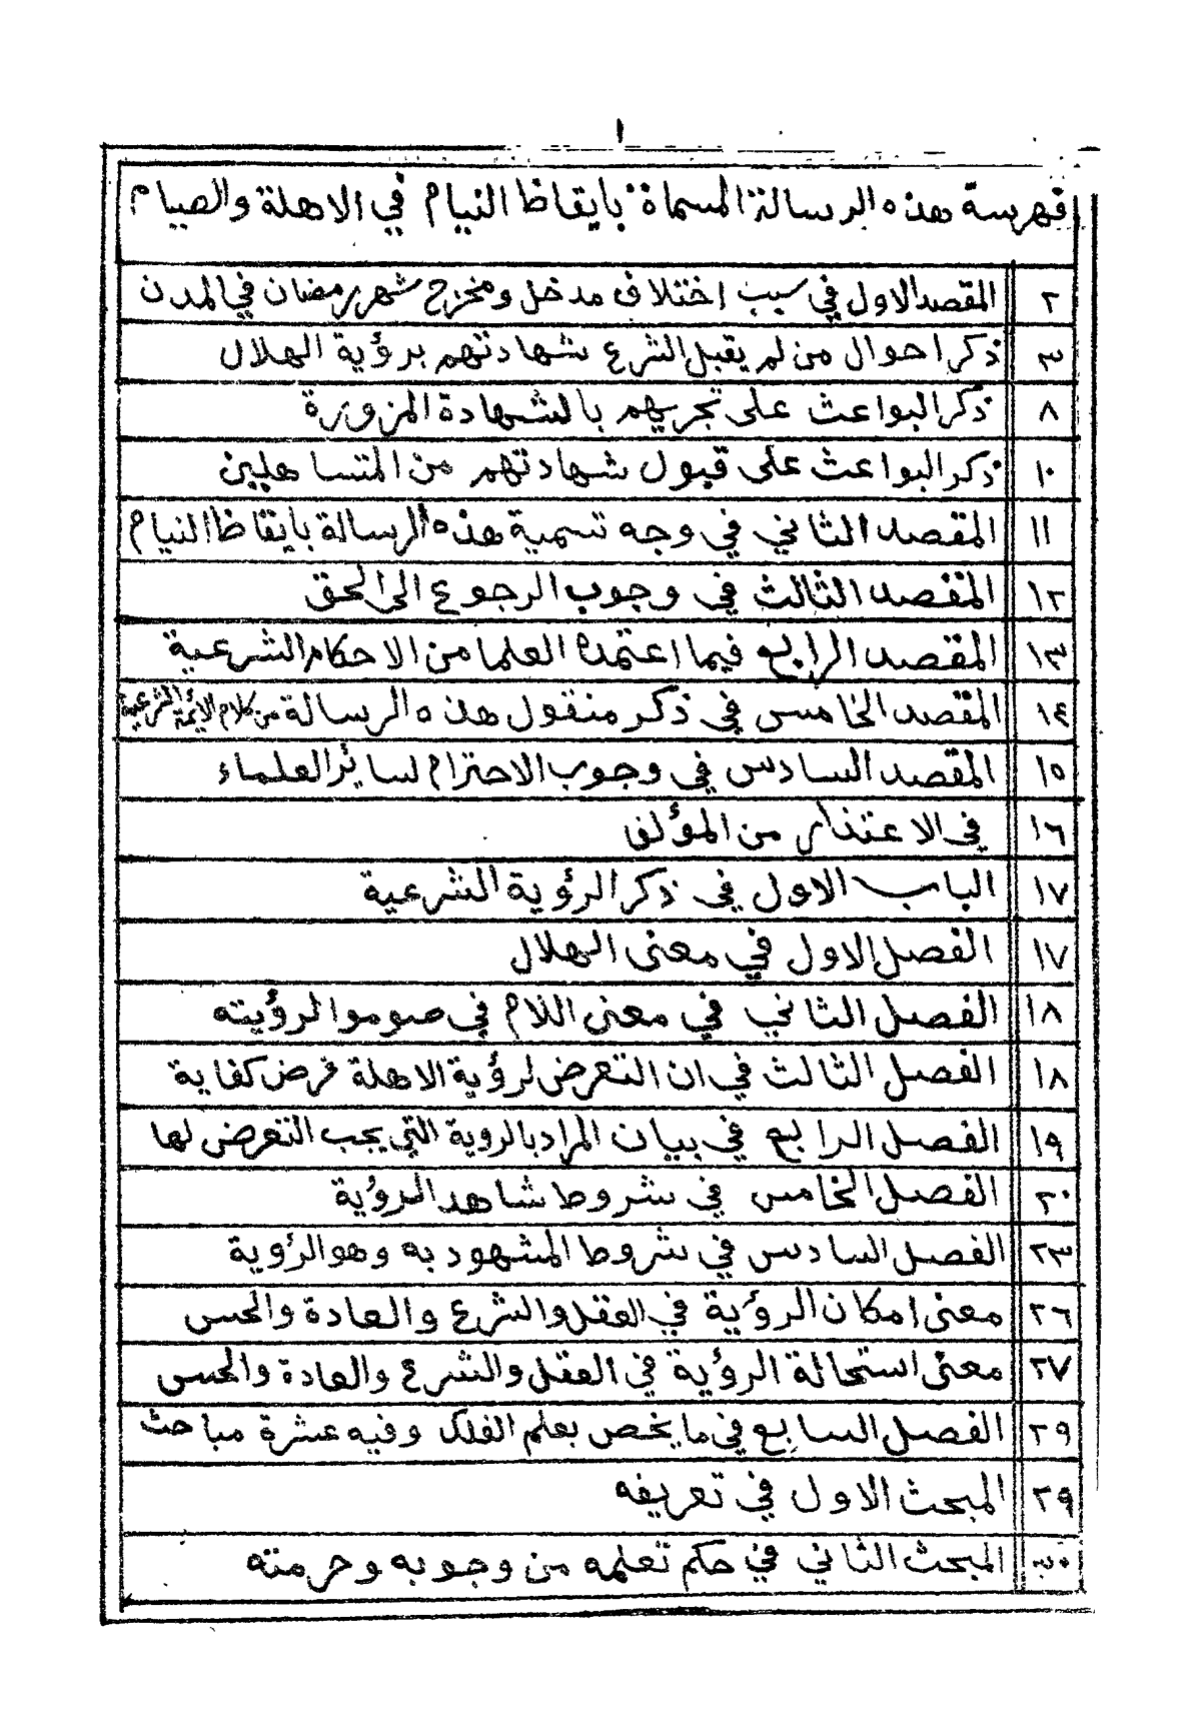 ١
فهرسة هذه الرسالة المسماة بايقاظ النيام في الاهلة والصيام
٢ المقصد الاول في سبب اختلاف مدخل ومخرج شهر رمضان في المدن
٣ ذكر احوال من لم يقبل الشرع شهادتهم برؤية الهلال
٨ ذكر البواعث على تجريهم بالشهادة المزورة
١٠ ذكر البواعث على قبول شهادتهم من المتساهلين
١١ المقصد الثاني في وجه تسمية هذه الرسالة بايقاظ النيام
١٢ المقصد الثالث في وجوب الرجوع الى الحق
١٣ المقصد الرابع فيما اعتمده العلما من الاحكام الشرعية
١٤ المقصد الخامس في ذكر منقول هذه الرسالة من كلام الائمة الشرعية
١٥ المقصد السادس في وجوب الاحترام لسائر العلماء
١٦ في الاعتذار من المؤلف
١٧ الباب الاول في ذكر الرؤية الشرعية
١٧ الفصل الاول في معنى الهلال
١٨ الفصل الثاني في معنى اللام في صوموا لرؤيته
١٨ الفصل الثالث في ان التعرض لرؤية الاهلة فرض كفاية
١٩ الفصل الرابع في بيان المراد بالروية التي يجب التعرض لها
٢٠ الفصل الخامس في شروط شاهد الرؤية
٢٣ الفصل السادس في شروط المشهود به وهو الرؤية
٢٦ معنى امكان الرؤية في العقل والشرع والعادة والحس
٢٧ معنى استحالة الرؤية في العقل والشرع والعادة والحس
٢٩ الفصل السابع في ما يخص بعلم الفلك وفيه عشرة مباحث
٢٩ المبحث الاول في تعريفه
٣٠ المبحث الثاني في حكم تعلمه من وجوبه وحرمته